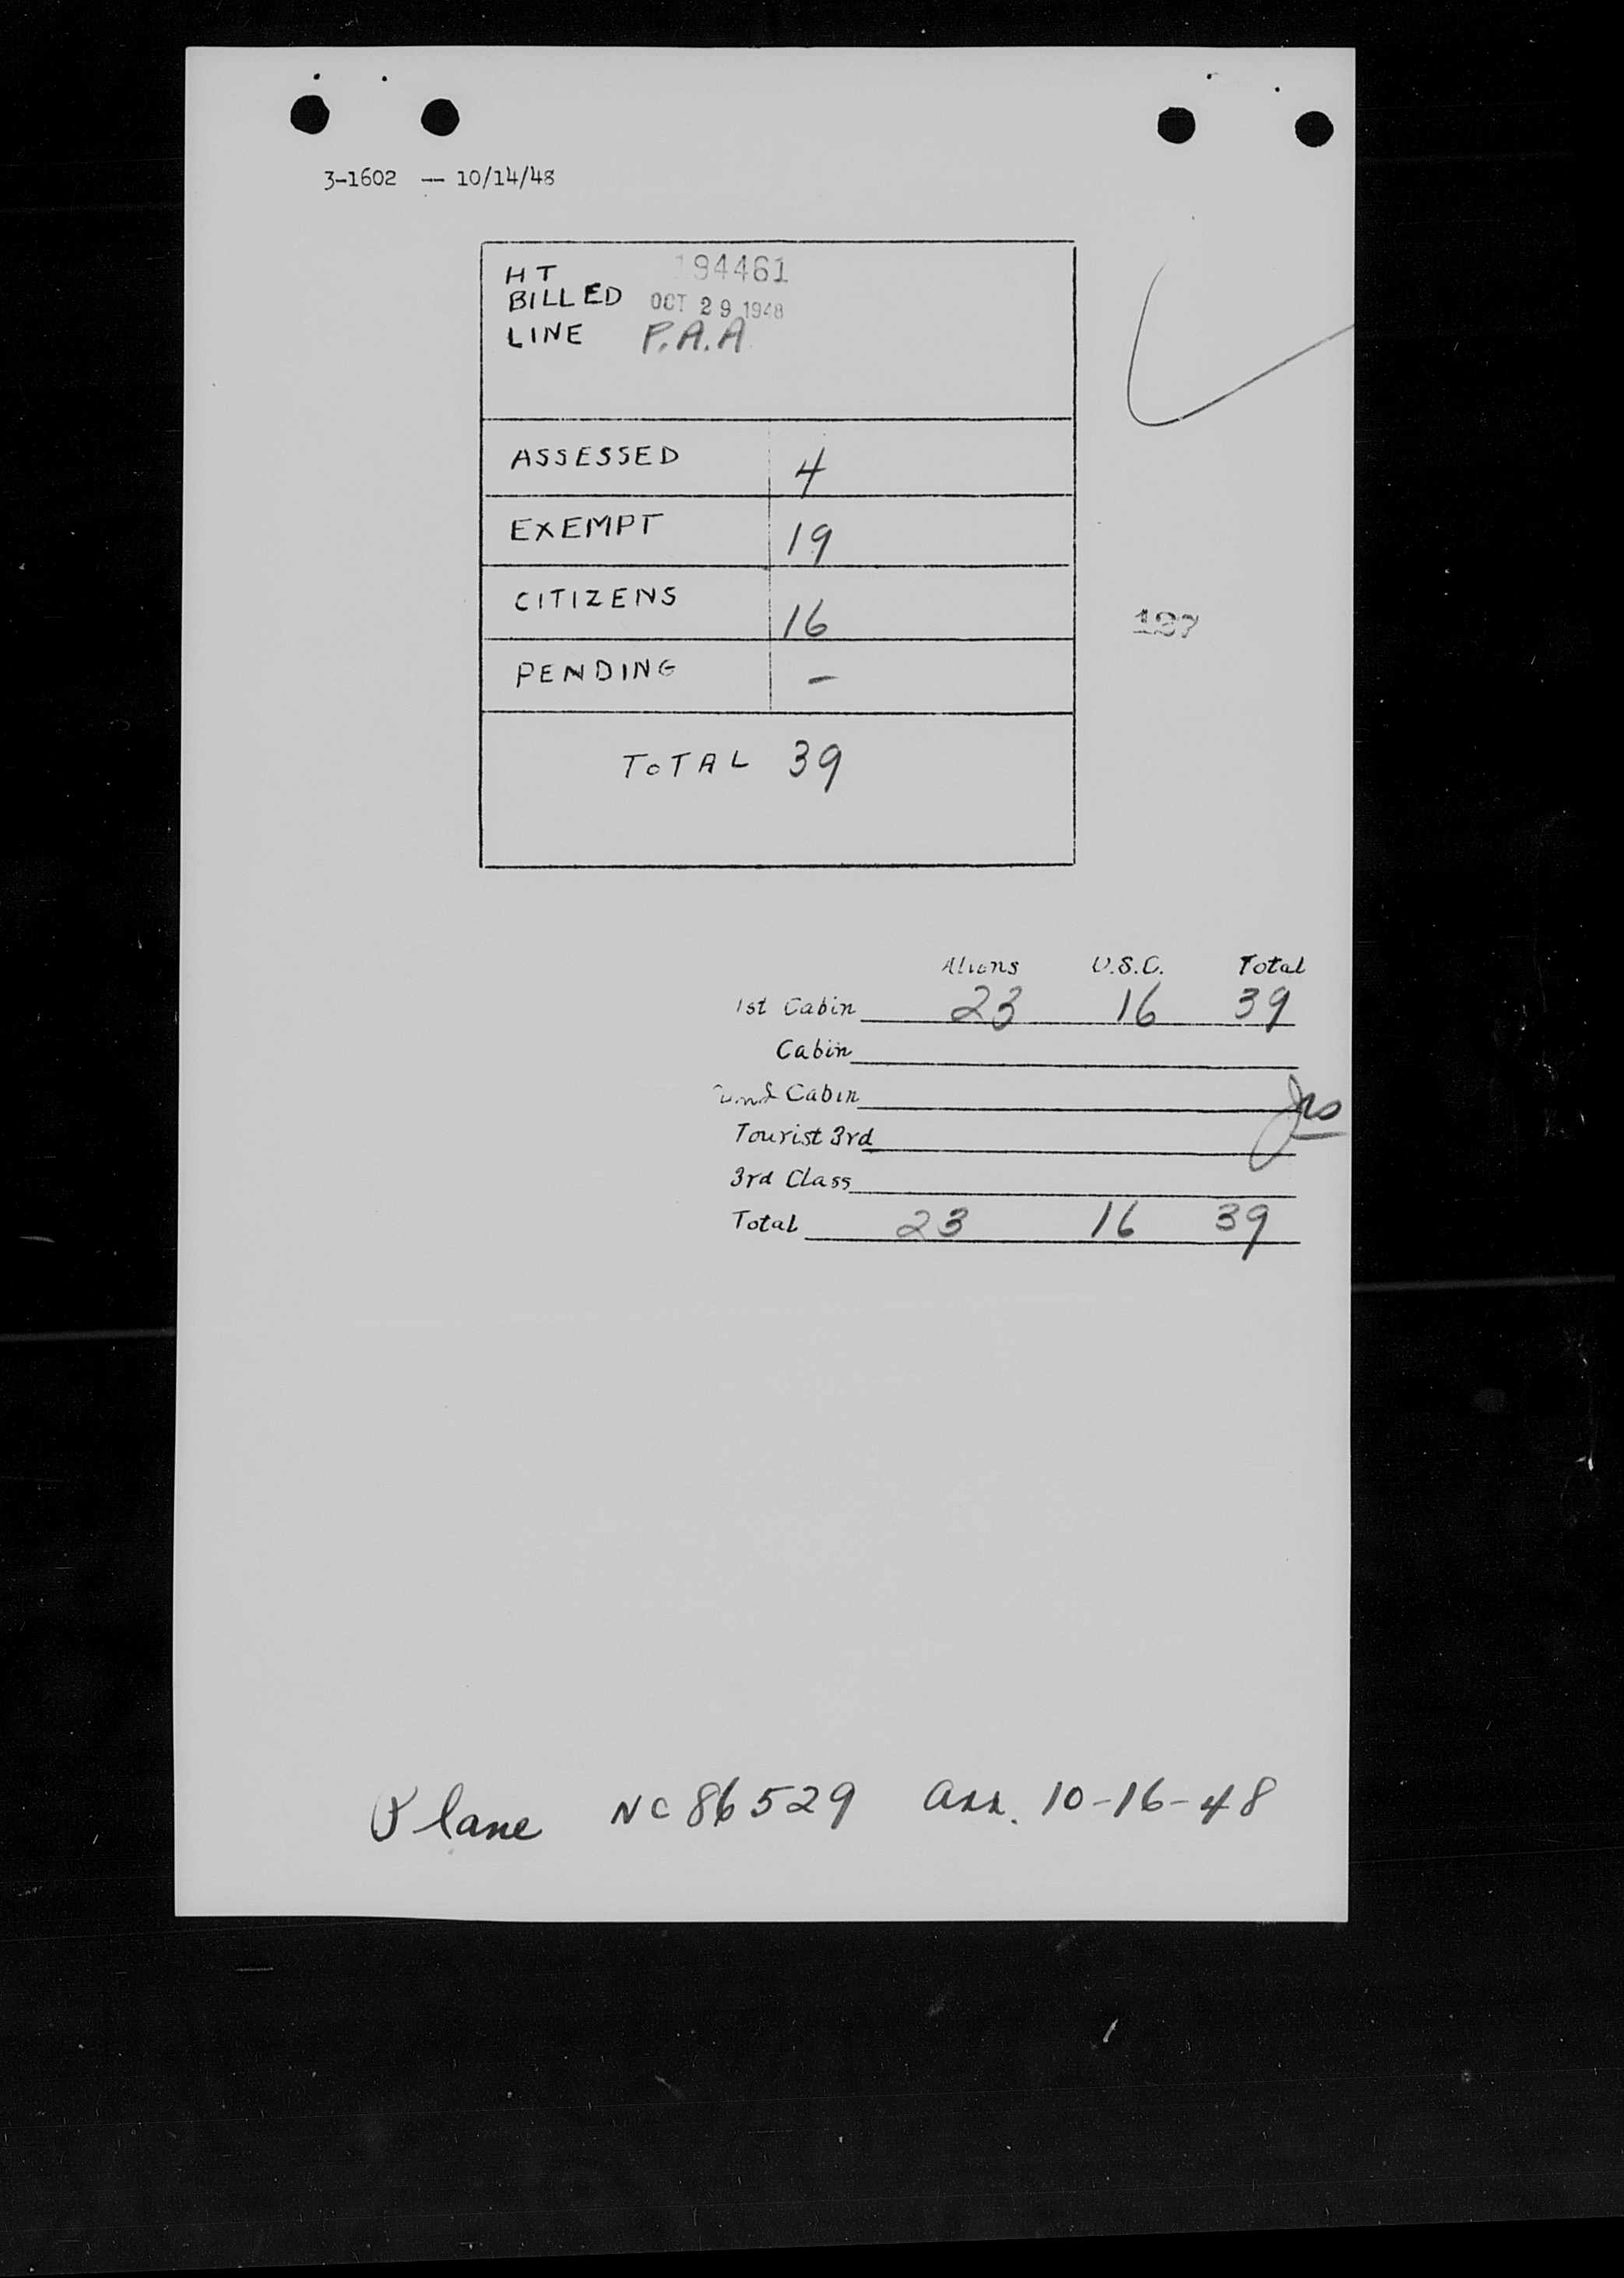 3-1602 -- 10/14/48
HT 194461
BILLED OCT 29 1948
LINE P.A.A.
ASSESSED 4
EXEMPT 19
CITIZENS 16
PENDING -
TOTAL 39
Aliens U.S.C. Total
1st Cabin 23 16 39
Cabin
2nd Cabin
Tourist 3rd
3rd Class
Total 23 16 39
Plane NC86529 arr. 10-16-48